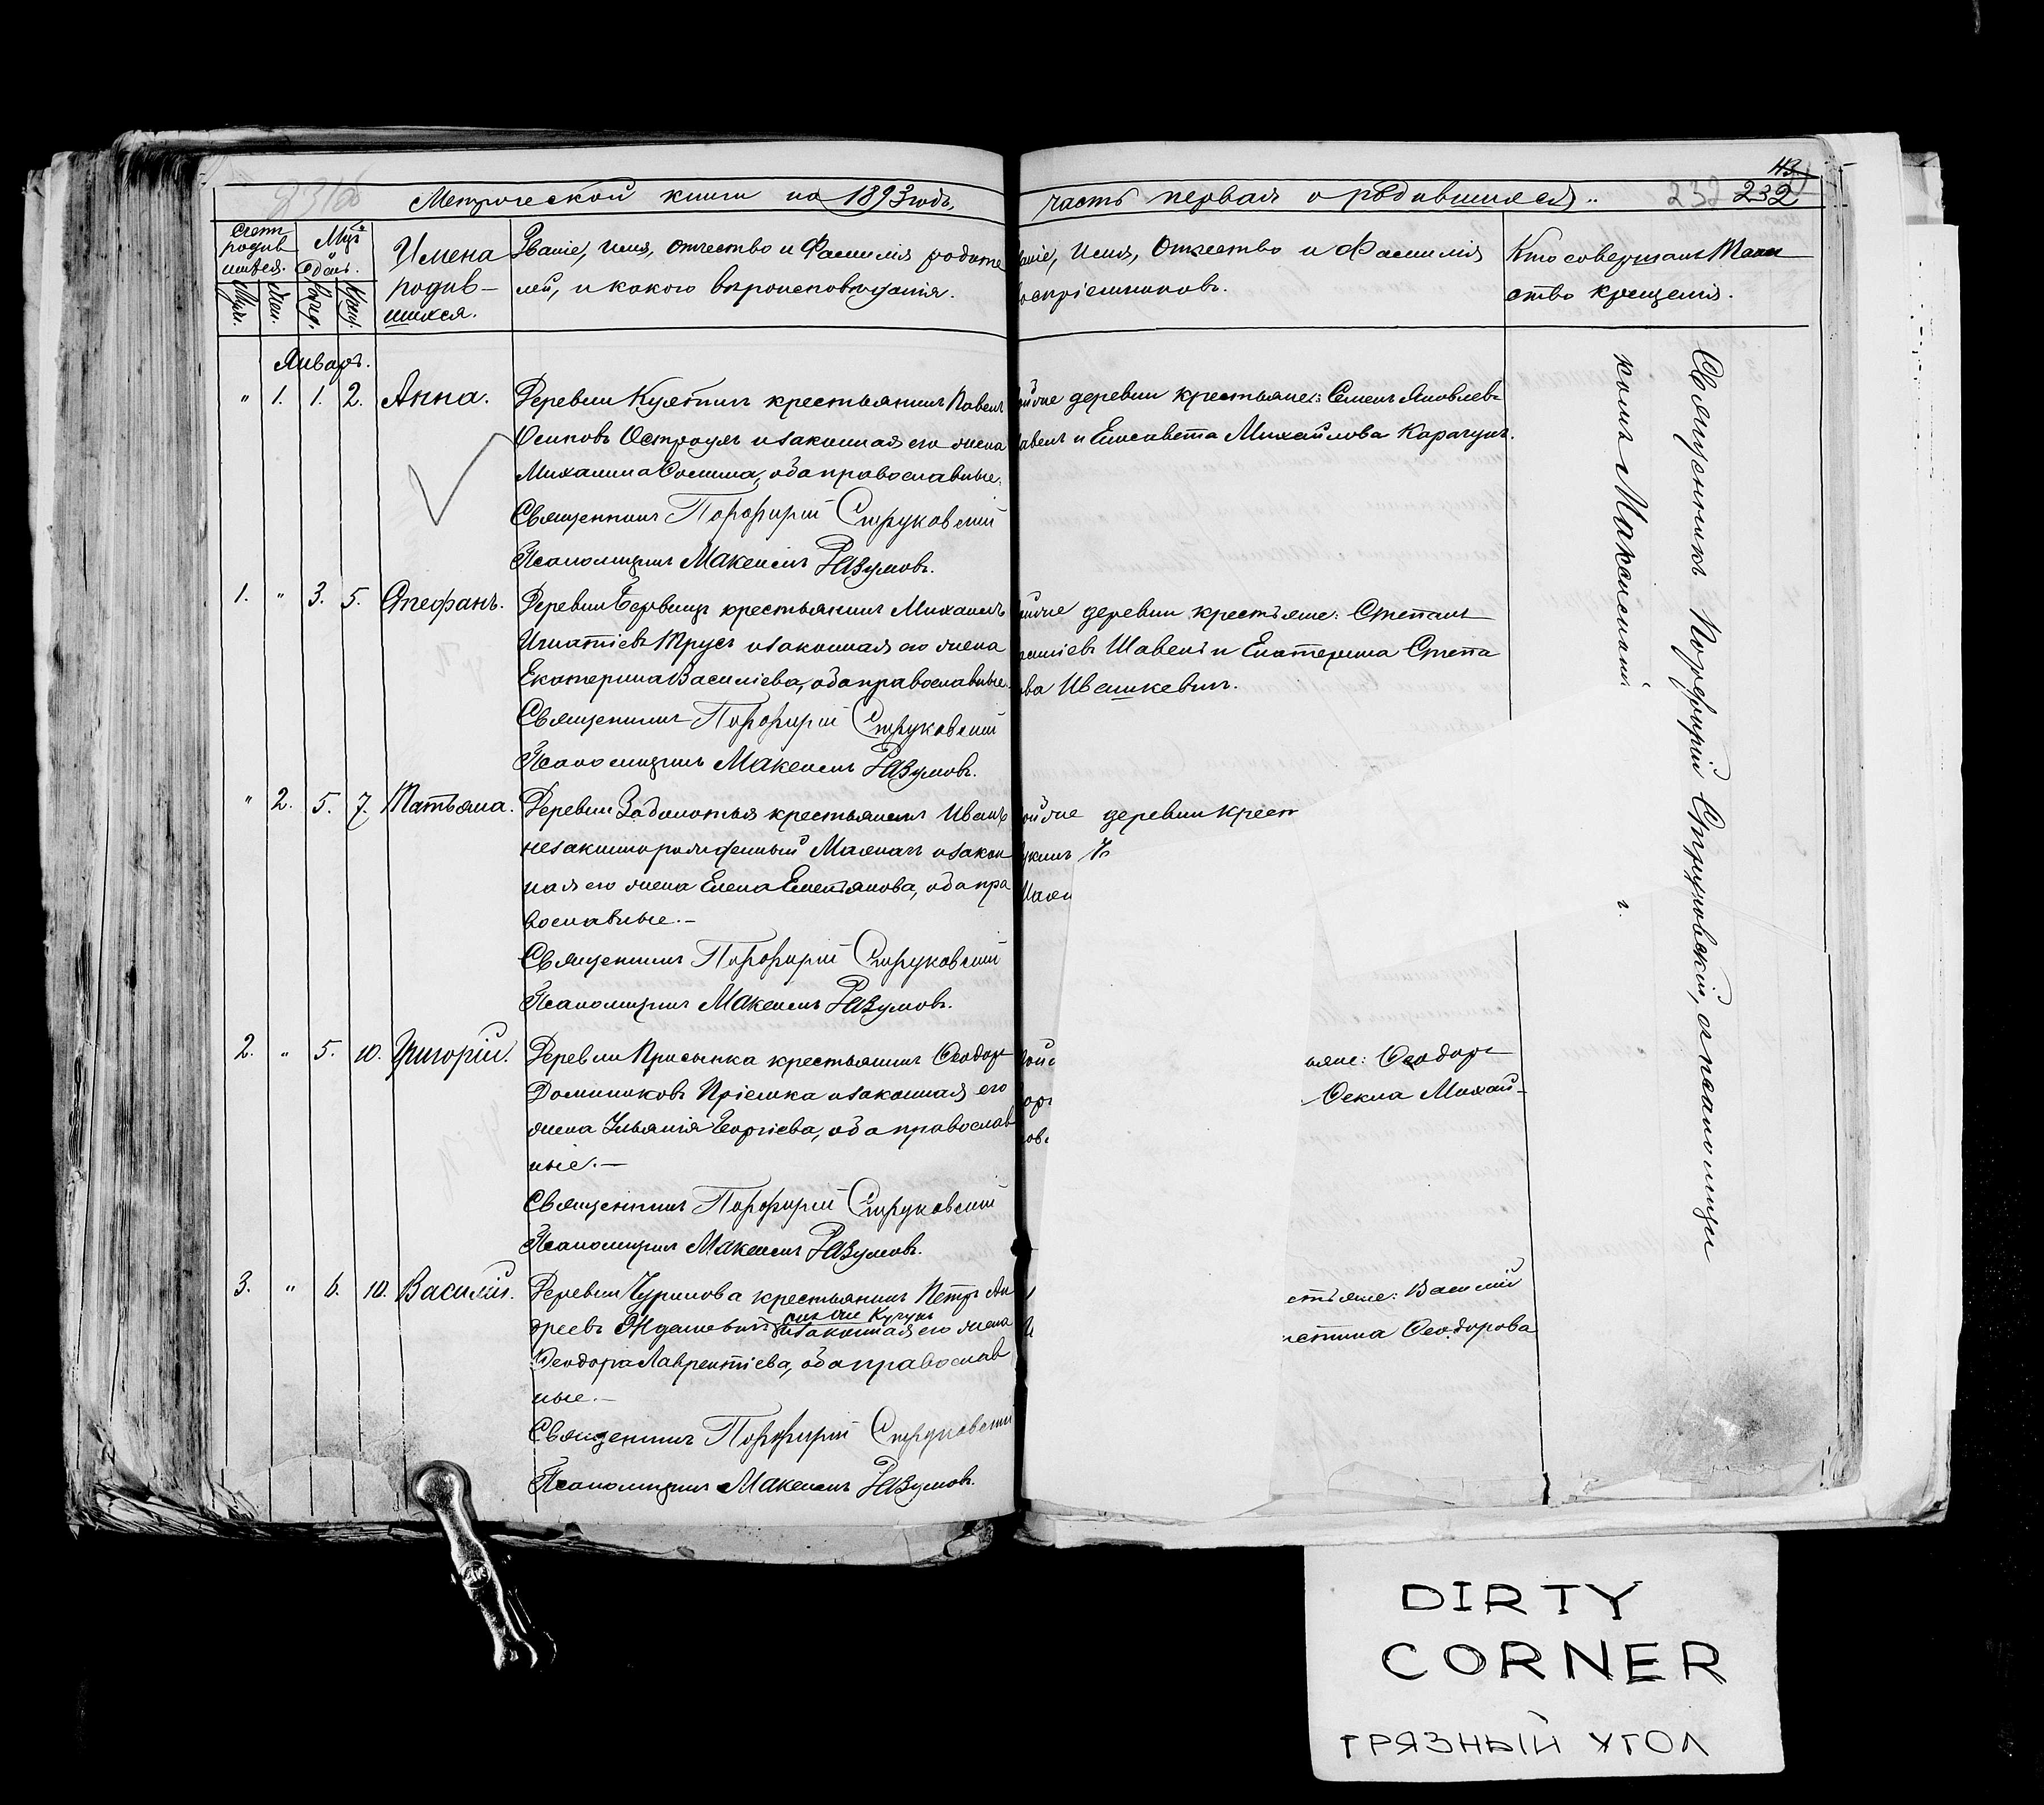 43
231б
Метрической книги на 1893 годъ,
часть первая о родившихся..
232 232
Счетъ родив шихся.
Муж.
Жен.
Рожд.
Крещ.
Имена родив- шихся.
Званіе, имя, отчество и фамилія родите
лей, и какого вѣроисповѣданія.
аніе, Имя, Отчество и Фамилія
оспріемниковъ.
Кто совершалъ Таин
ство крещенія.
Январь.
" 1. 1. 2. Анна.
Деревни крестьянинъ Павелъ
Осиповъ и законная его жена
Михалина обаправославные.
Священникъ Порфирій Струковскій
Псаломщикъ Максимъ Разумовъ.
ойже деревни крестьяне: Семенъ Яковлевъ
и Елисавета Михайлова Карачунъ.
1. " 3. 5. Стефанъ.
Деревни крестьянинъ Михаилъ
Игнатіевъ Трусъ и законная его жена
Екатерина Василіева, оба православные.
Священникъ Порфирій Струковскій
Псаломщикъ Максимъ Разумовъ.
ойже деревни крестьяне: Степанъ
и Екатерина Степа
ва Ивашкевичъ.
" 2. 5. 7. Татьяна.
Деревни Заболотья крестьянинъ Иванъ
незаконнорожденный и закон
ная его жена Елена Емельянова, оба пра
вославные.-
Священникъ Порфирій Струковскій
Псаломщикъ Максимъ Разумовъ.
ойже деревни крест
2. " 5. 10. Григорій.
Деревни Присынка крестьянинъ Ѳеодоръ
Доминиковъ Пріемка и законная его
жена Ульянія Георгіева, оба православ
ные.-
Священникъ Порфирій Струковскій
Псаломщикъ Максимъ Разумовъ.
ойж
яне: Ѳеодоръ
Ѳекла Михай-
3. " 6. 10. Василій.
Деревни Чурилова крестьянинъ Петръ Ан
дреевъ Ждановичъ и законная его жена
Ѳеодора Лаврентіева, оба православ
ные.-
Священникъ Порфирій Струковскій
Псаломщикъ Максимъ Разумовъ.
стьяне: Василій
Ѳеодорова
Священникъ Порфирій Струковскій, а псаломщи
комъ Максимъ
DIRTY
CORNER
ГРЯЗНЫЙ УГОЛ